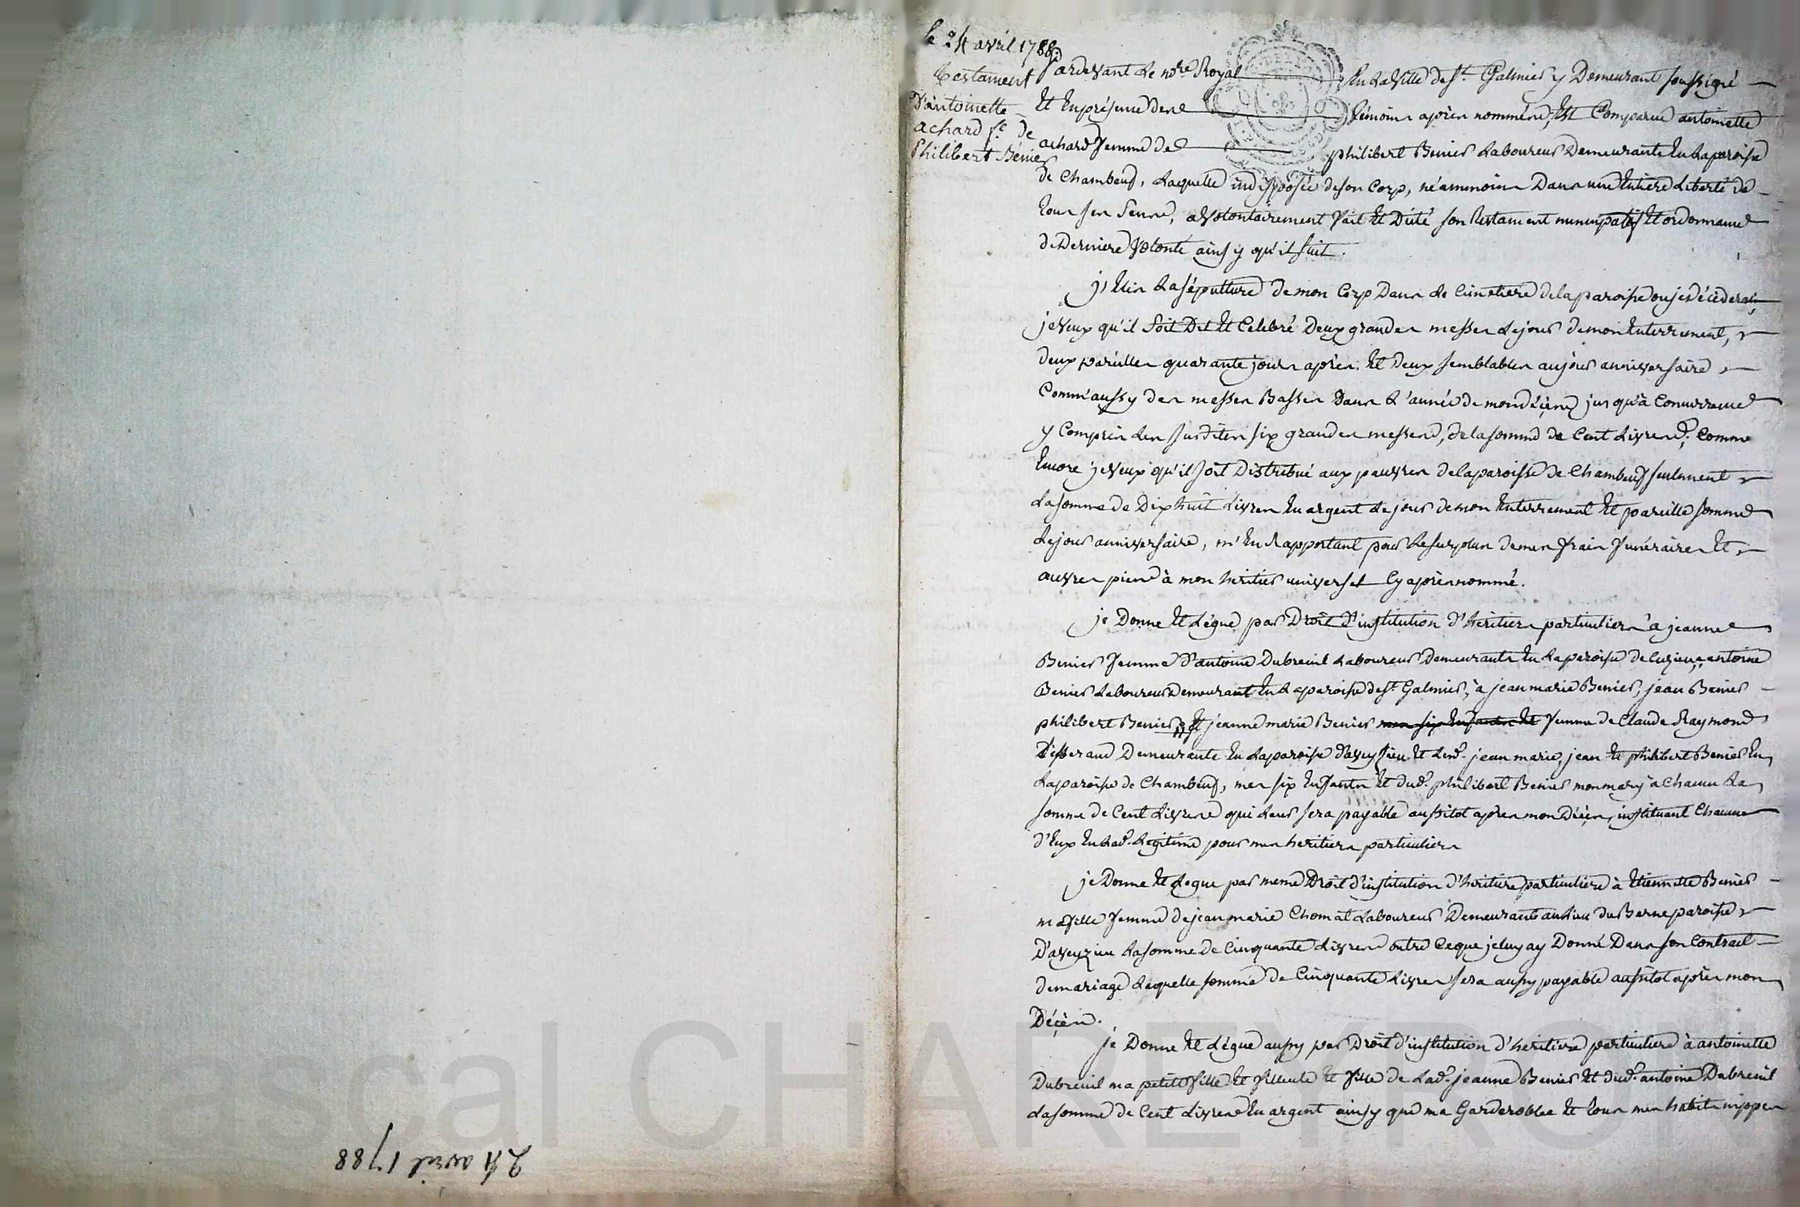 24 avril 1788
le 24 avril 1788.
Testament
d'antoinette
achard f.e de
Philibert Benier
Pardevant le no.re Royal en la ville de S.t Galmier y Demeurant soussigné
et en présence des témoins après nommés, Est Comparue antoinette
achard femme de philibert Benier Laboureur Demeurante en la paroisse
de Chambeuf, laquelle indisposée de son Corp, néammoins Dans une Entiere Liberté de
tous ses Sens, a volontairement fait et Dicté son testament nuncupatif et ordonnance
de Derniere volonté ainsy qu'il suit.
j'Elis la sépulture de mon Corp Dans le Cimetiere de la paroisse ou je décéderai,
je veux qu'il soit Dit et Celebré Deux grandes messes le jour de mon Enterrement,
deux pareilles quarante jours après. et Deux semblables au jour anniversaire,
Comm'aussy des messes Basses Dans l'année de mon décès jusqu'à Concurrance
y Compris les susdites six grandes messes, de la somme de Cent Livres. Comme
Encore je veux qu'il soit Distribué aux pauvres de la paroisse de Chambeuf seulement
la somme de Dix huit Livres En argent le jour de mon Enterrement et pareille somme
le jour anniversaire, m'En Rapportant pour le surplus de mes frais funéraires et
œuvres pies à mon heritier universel Cy après nommé.
je Donne et Lègue par Droit d'institution d'heritiers particuliers à jeanne
Benier femme d'antoine Dubreuil Laboureur Demeurants En la paroisse de antoine
Benier Laboureur Demeurant En la paroisse de S.t Galmier, à jean marie Benier, jean Benier
philibert Benier, et jeanne marie Benier mes six Enfants et femme de Claude Raymond
Tisserand Demeurante En la paroisse d'aveyzieu et lesd. jean marie, jean et philibert Benier En
la paroisse de Chambeuf, mes six Enfants et dud. philibert Benier mon mary à Chacun la
somme de Cent Livres qui leur sera payable aussitot après mon Décès, instituant Chacun
d'Eux En lad. Legitime pour mes heritiers particuliers
je Donne et Legue par meme Droit d'institution d'heritiere particuliere à Etiennette Benier
ma fille femme de jean marie Chomat Laboureur Demeurants au lieu du Berne paroisse
D'aveyzieu la somme de Cinquante Livres outre Ce que je luy ay Donné Dans son Contrait
de mariage laquelle somme de Cinquante Livres sera aussy payable aussitot après mon
Décès.
je Donne et Lègue aussy par Droit d'institution d'heritiere particuliere à antoinette
Dubreuil ma petite fille et filleule et fille de lad. jeanne Benier et dud. antoine Dubreuil
la somme de Cent Livres En argent ainsy que ma Garderobbe et tous mes habits
Pascal CHAREYRON